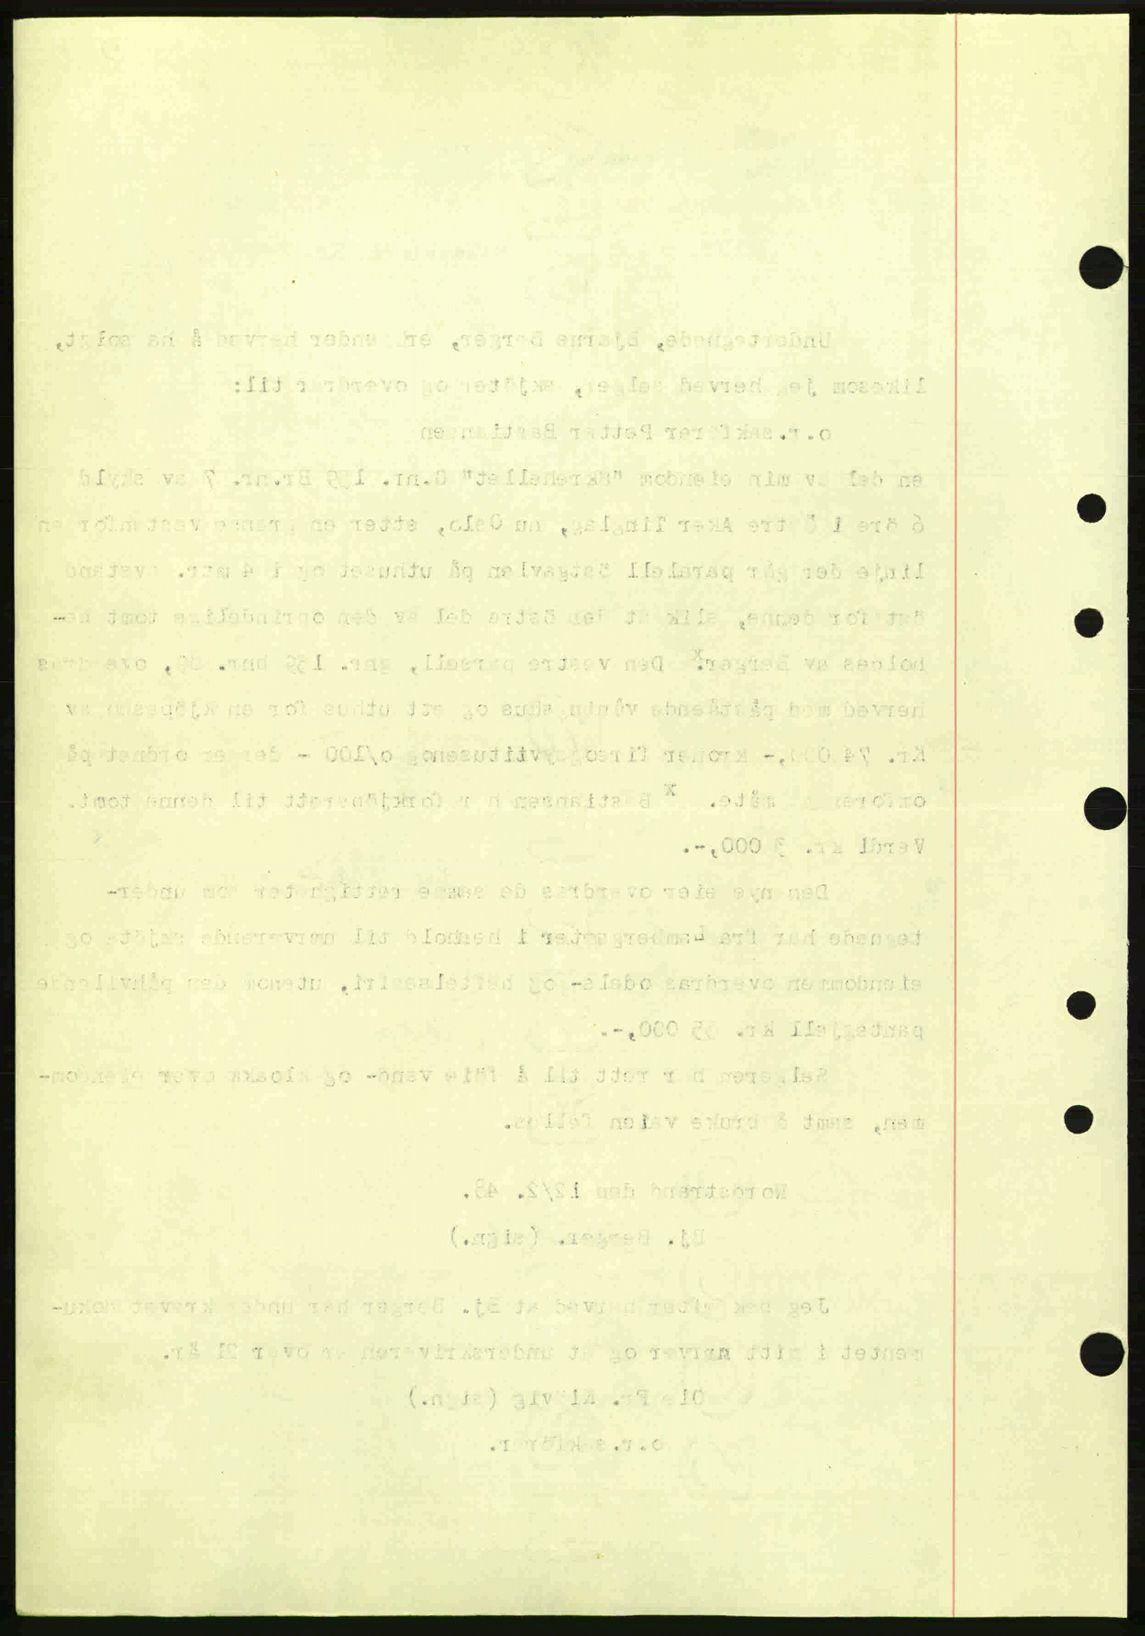 Undertegnede, Bjarne Berger, erkjender herved å ha solgt,
likesom jeg herved selger, skjöter og overdrar til:
o.r.sakförer Petter Bastiansen
en del av min eiendom "Skrehellet" G.nr. 159 Br.nr. 7 av skyld
6 öre i Östre Aker tinglag, nu Oslo, etter en grense vestenfor en
linje der går paralell östgavlen på uthuset og i 4 mtr. avstand
öst for denne, slik at den östre del av den oprindelige tomt be-
holdes av Berger.x Den vestre parsell, gnr. 159 bnr. 80, overdras
herved med påstående våningshus og ett uthus for en kjöpesum av
Kr. 74 000,- kroner firogsyttitusenog o/100 - der er ordnet på
omforenet måte. x Bastiansen har forkjöpsrett til denne tomt.
Verdi kr. 3 000,-.
Den nye eier overdras de samme rettigheter som under-
tegnede har fra Lambergseter i henhold til nærværende skjöte og
eiendommen overdras odels- og heftelsesfri, utenom den påhvilende
pantegjell kr. 35 000,-.
Selgeren har rett til å föie vand- og kloakk over eiendom-
men, samt å bruke veien felles.
Nordstrand den 12/2. 48.
Bj. Berger. (sign.)
Jeg bekrefter herved at Bj. Berger har underskrevet doku-
mentet i mitt nærvær og at underskriveren er over 21 år.
Ole Fr. (sign.)
o.r.sakförer.